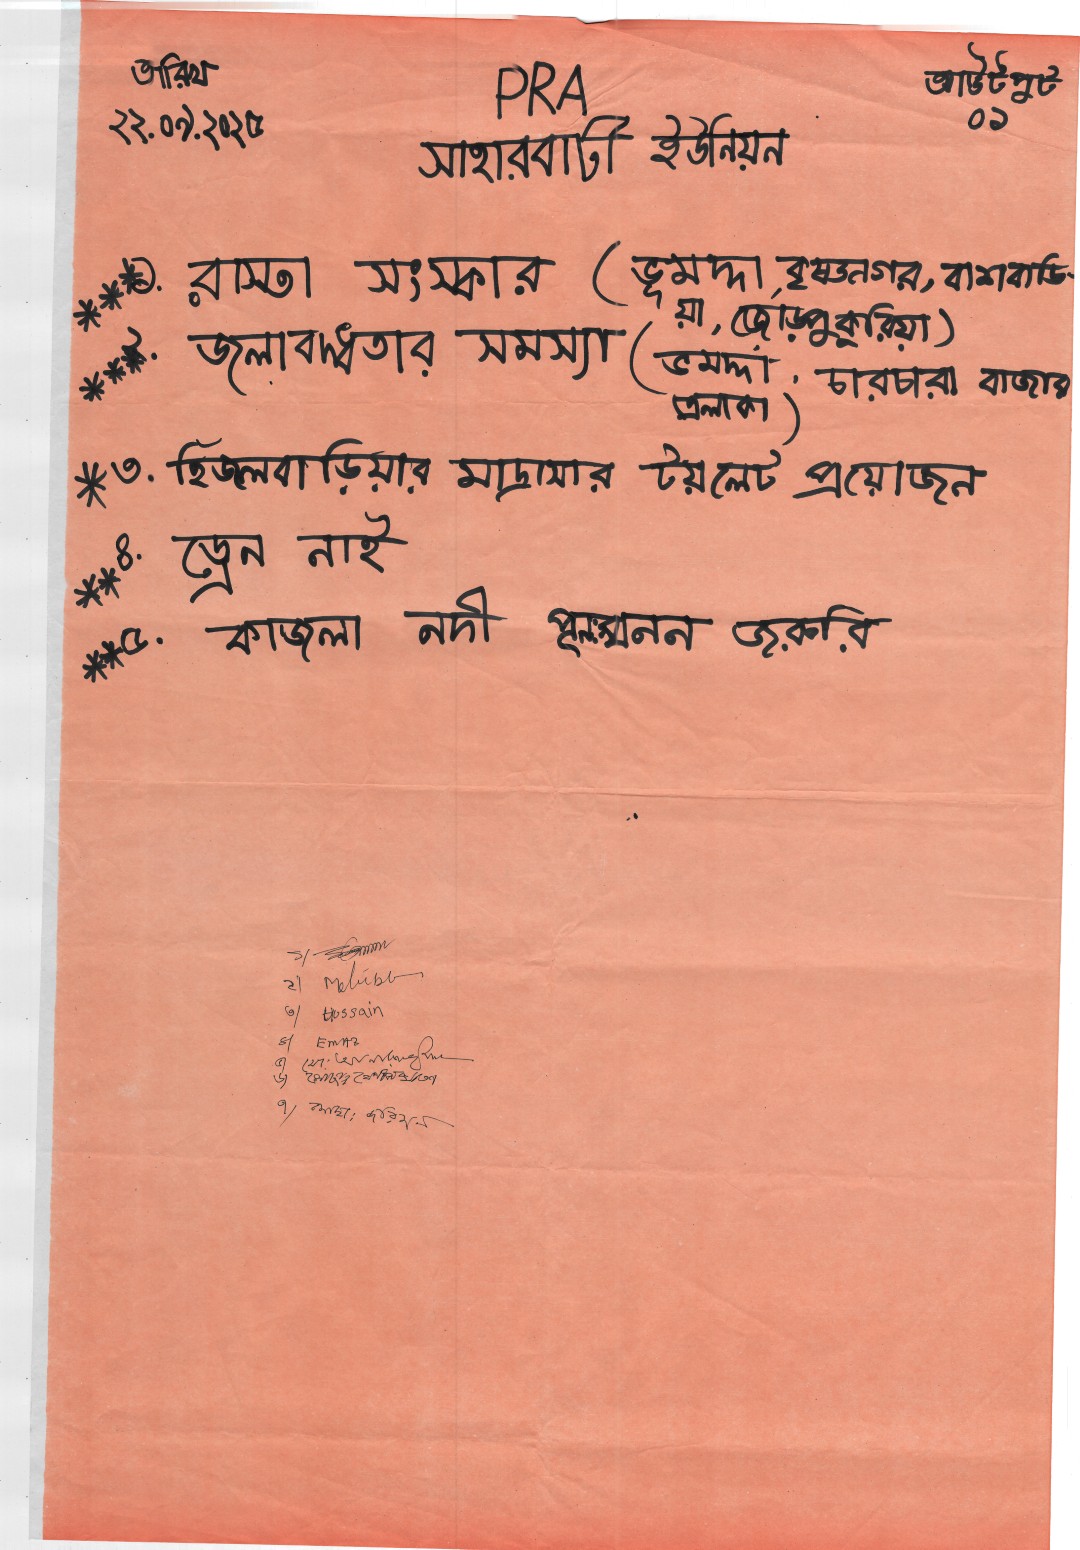 তারিখ
২২.০৭.২০২৫
PRA
সাহারবাটী ইউনিয়ন
আউটপুট
০১
***১. রাস্তা সংস্কার (ভূমদ্দা, কৃষ্ণনগর, বাশবাড়ি-
য়া, জোড়পুকুরিয়া)
***২. জলাবদ্ধতার সমস্যা (ভমদ্দা, চারচারা বাজার
এলাকা)
*৩. হিজলবাড়িয়ার মাদ্রাসার টয়লেট প্রয়োজন
**৪. ড্রেন নাই
**৫. কাজলা নদী পূনঃখনন জরুরি
১/
২/
৩/ Hossain
৪/
৫/ মো:
৬/
৭/